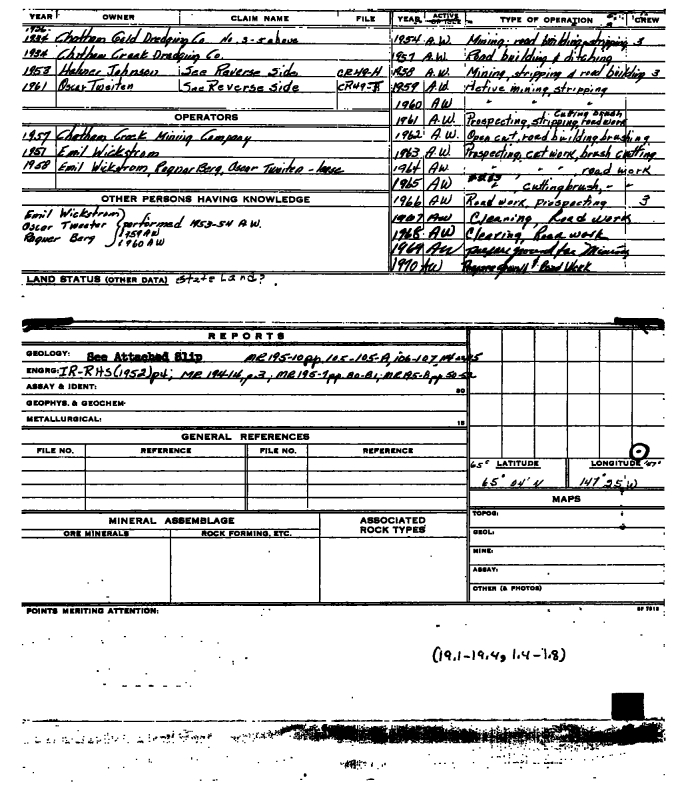 YEAR OWNER CLAIM NAME FILE
1934 Chatham Gold Dredging Co. No. 3-5 above
1934 Chatham Creek Dredging Co.
1953 Johnson See Reverse Side CR49-H
1961 Oscar Tweiten See Reverse Side CR49-
OPERATORS
1957 Chatham Creek Mining Company
1957 Emil Wickstrom
1958 Emil Wickstrom, Ragnar Berg, Oscar Tweiten - lease
OTHER PERSONS HAVING KNOWLEDGE
Emil Wickstrom
Oscar Tweater performed 1953-54 A.W.
Ragner Berg 1959 AW
1960 AW
LAND STATUS (OTHER DATA) State Land?
YEAR ACTIVE TYPE OF OPERATION CREW
1954 A.W. Mining, road building, stripping 3
1957 A.W. Road building & ditching
1958 A.W. Mining, stripping & road building 3
1959 A.W. Active mining, stripping
1960 AW " "
1961 A.W. Prospecting, stripping, road work Cutting brush
1962 A.W. Open cut, road building brushing
1963 A.W. Prospecting, cat work, brush cutting
1964 AW " " , road work
1965 AW " cutting brush, " "
1966 AW Road work, prospecting 3
1967 AW Cleaning, Road work
1968 AW Clearing, Road work
1969 AW prepare ground for Mining
1970 AW Prepare ground & Road Work
REPORTS
GEOLOGY: See Attached Slip MR195-10 pp. 105-105-A, 106-107
ENGRG: IR-RHS (1952) p4; MR 194-14, p.3, MR195-7 pp. 80-81; MR195-8, pp 50-52
ASSAY & IDENT: 20
GEOPHYS. & GEOCHEM-
METALLURGICAL: 15
GENERAL REFERENCES
FILE NO. REFERENCE FILE NO. REFERENCE
65° LATITUDE LONGITUDE 147°
65° 04' N 147° 25' W
MAPS
MINERAL ASSEMBLAGE ASSOCIATED ROCK TYPES
ORE MINERALS ROCK FORMING, ETC.
TOPOG:
GEOL:
MINE:
ASSAY:
OTHER (& PHOTOS)
POINTS MERITING ATTENTION:
(19.1-19.4, 1.4-1.8)